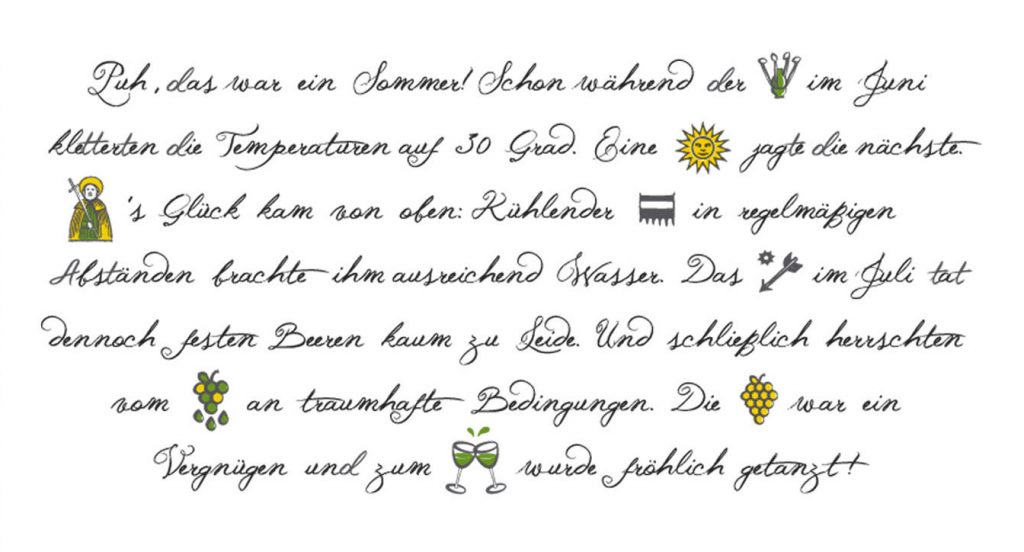 Puh, das war ein Sommer! Schon während der im Juni
kletterten die Temperaturen auf 30 Grad. Eine jagte die nächste.
's Glück kam von oben: Kühlender in regelmäßigen
Abständen brachte ihm ausreichend Wasser. Das im Juli tat
dennoch festen Beeren kaum zu Leide. Und schließlich herrschten
vom an traumhafte Bedingungen. Die war ein
Vergnügen und zum wurde fröhlich getanzt!